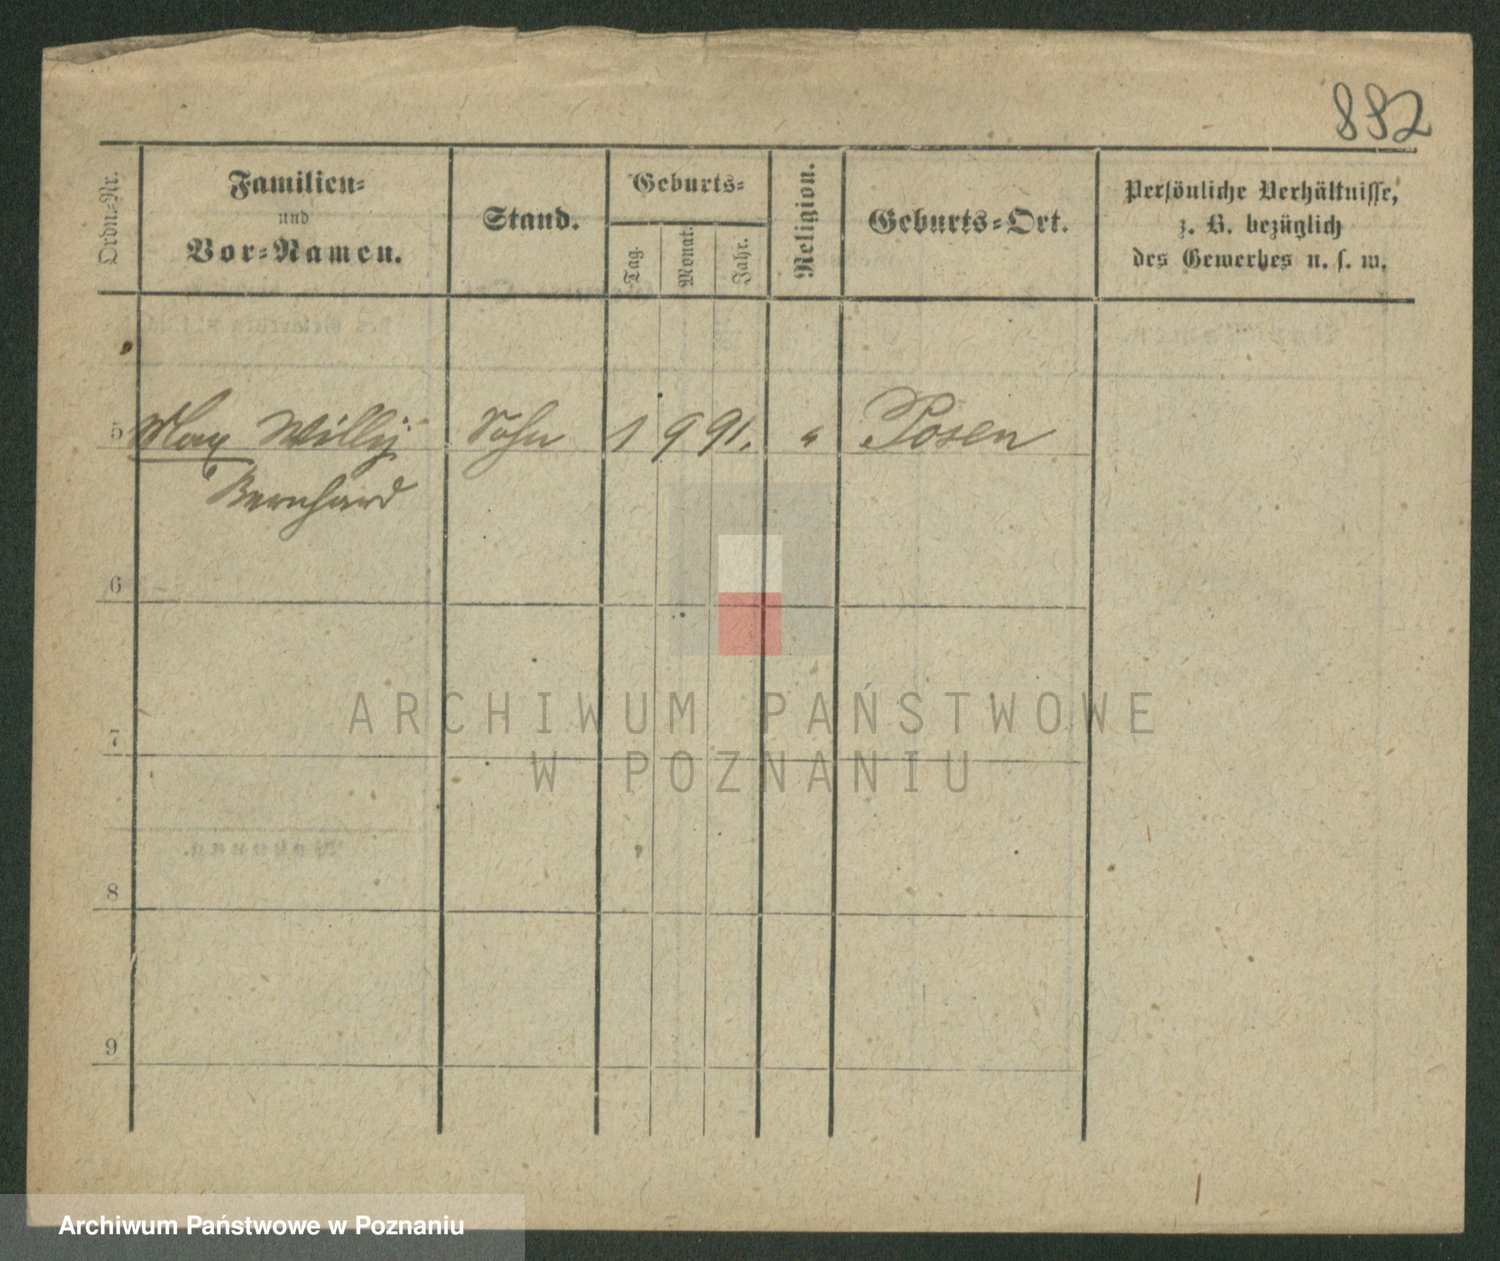 882
Ordn.-Nr.
Familien-
und
Vor-Namen.
Stand.
Geburts-
Tag.
Monat.
Jahr.
Religion.
Geburts-Ort.
Persönliche Verhältnisse,
z. B. bezüglich
des Gewerbes u. s. w.
5 Max Willy Sohn 1 9 91. " Posen
Bernhard
6
7
8
9
ARCHIWUM PAŃSTWOWE
W POZNANIU
Archiwum Państwowe w Poznaniu